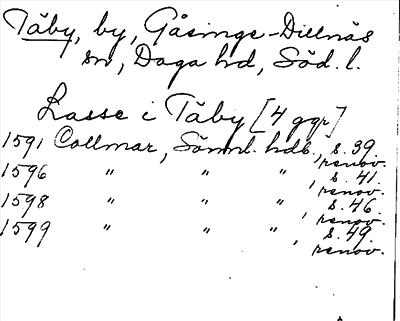 Täby, by, Gåsinge-Dillnäs
sn, Daga hd, Söd. l.
Lasse i Täby [4 ggr]
1591 Collmar, Sönml. hdl, s. 39
renov.
1596 " " " , s. 41.
renov.
1598 " " " , s. 46.
renov.
1599 " " " , s. 49.
renov.